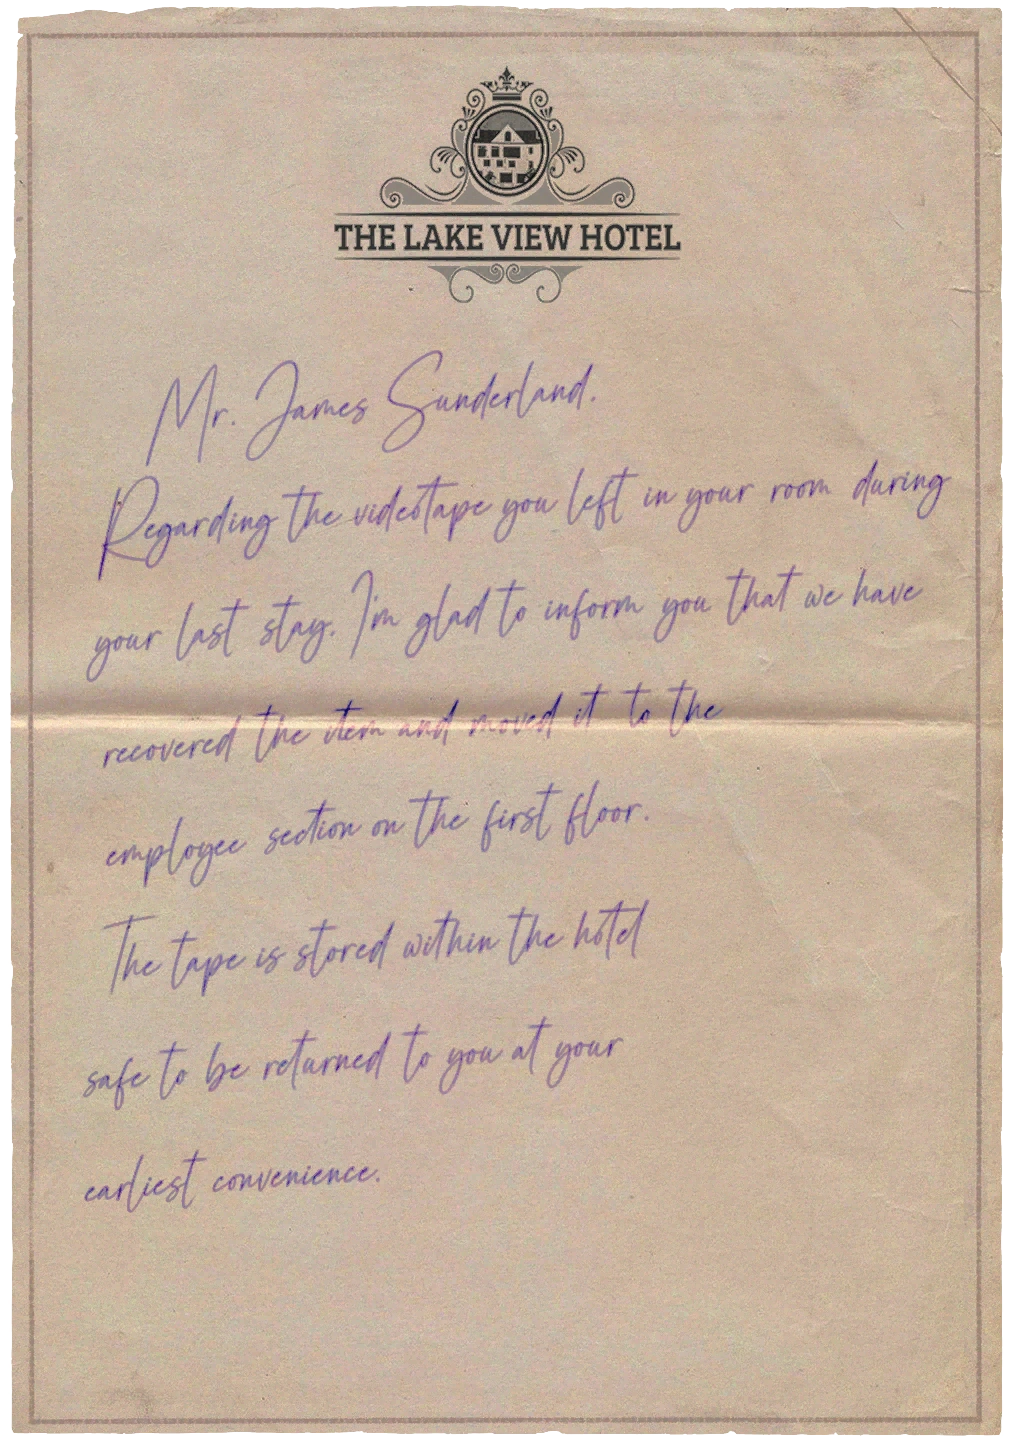 THE LAKE VIEW HOTEL
Mr. James Sunderland.
Regarding the videotape you left in your room during
your last stay. I'm glad to inform you that we have
recovered the item and moved it to the
employee section on the first floor.
The tape is stored within the hotel
safe to be returned to you at your
earliest convenience.